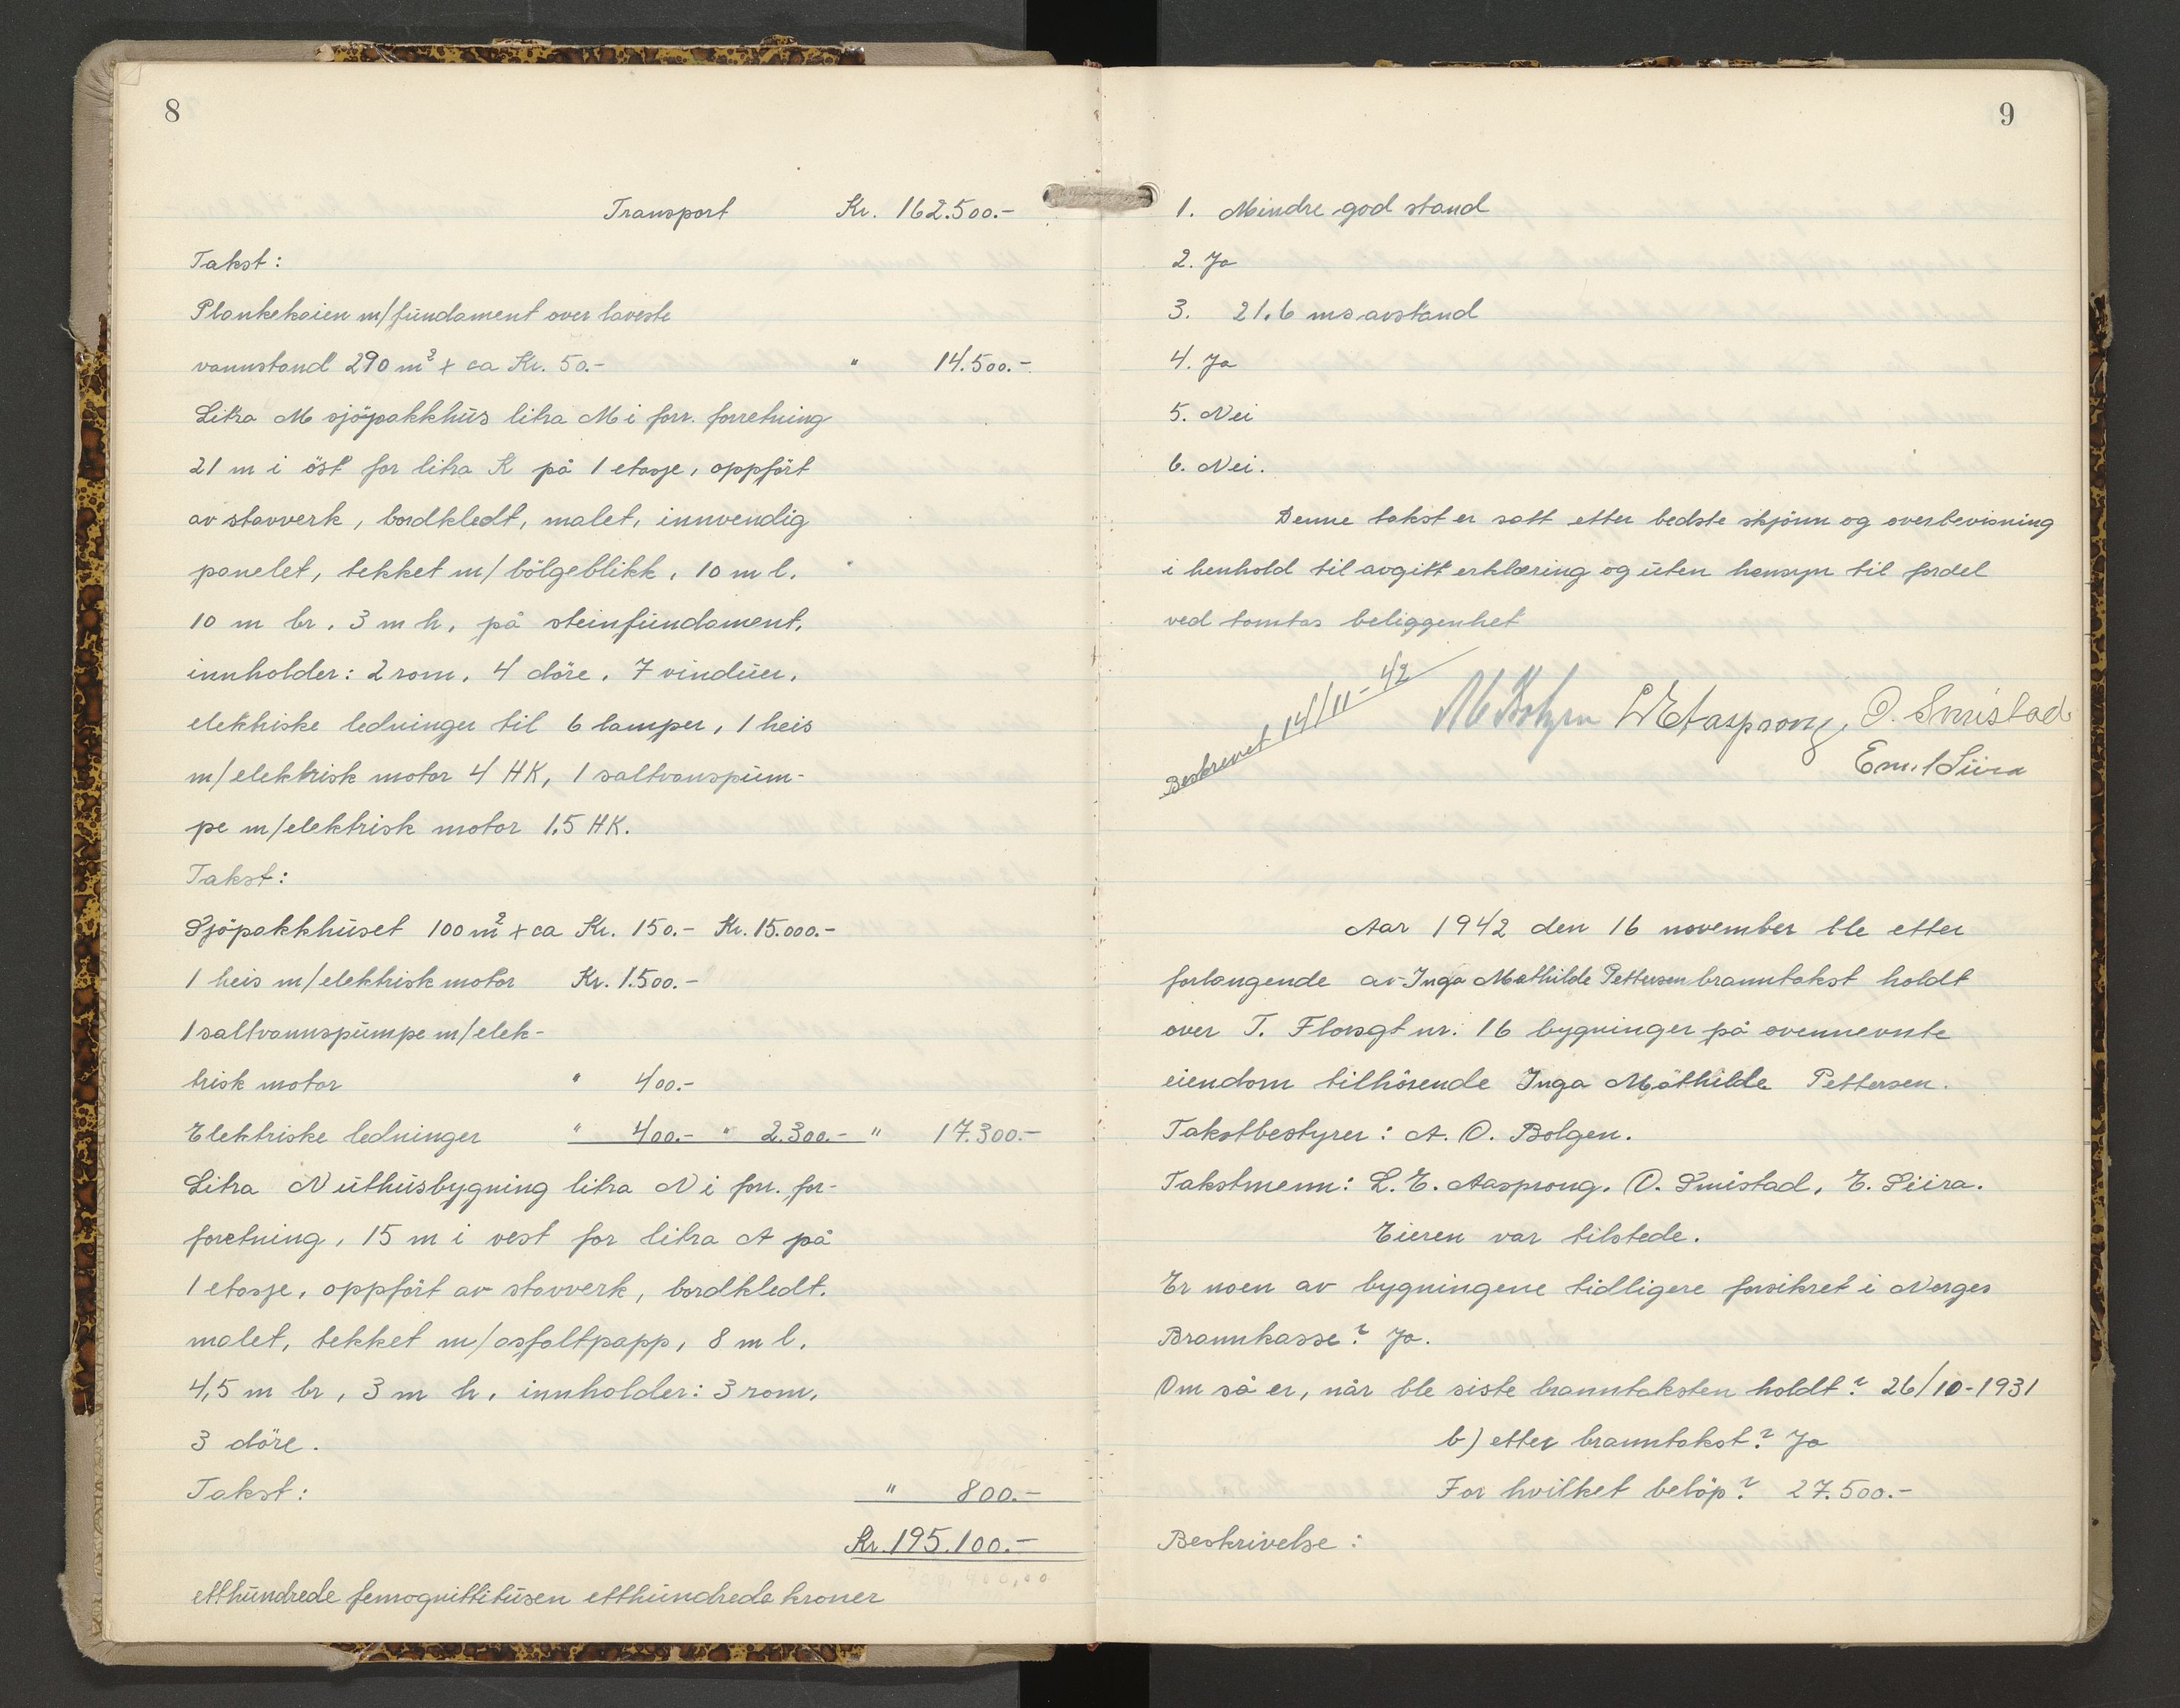 8
Transport Kr. 162.500.-
Takst:
Plankekaien m/fundament over laveste
vannstand 290 m² x ca Kr. 50.- " 14.500.-
Litra M sjöpakkhus litra M i forr. forretning
21 m i öst for litra K på 1 etasje, oppfört
av stavverk, bordkledt, malet, innvendig
panelet, tekket m/bölgeblikk, 10 m l.
10 m br, 3 m h, på steinfundament,
innholder: 2 rom, 4 döre, 7 vinduer,
elektriske ledninger til 6 lamper, 1 heis
m/elektrisk motor 4 HK, 1 saltvanspum-
pe m/elektrisk motor 1,5 HK.
Takst:
Sjöpakkhuset 100 m² x ca Kr. 150.- Kr. 15.000.-
1 heis m/elektrisk motor Kr. 1.500.-
1 saltvannspumpe m/elek-
trisk motor " 400.-
Elektriske ledninger " 400.- " 2.300.- " 17.300.-
Litra N uthusbygning litra N i forr. for-
foretning, 15 m i vest for litra A på
1 etasje, oppfört av stavverk, bordkledt,
malet, tekket m/asfaltpapp, 8 m l.
4,5 m br, 3 m h, innholder: 3 rom,
3 döre.
Takst: " 800.-
Kr. 195.100.-
etthundrede femognittitusen etthundrede kroner
9
1. Mindre god stand
2. Ja
3. 21,6 ms avstand
4. Ja
5. Nei
6. Nei.
Denne takst er satt etter bedste skjönn og overbevisning
i henhold til avgitt erklæring og uten hensyn til fordel
ved tomtas beliggenhet
Beskrevet 14/11-42
L E Aasprong, O. Smistad
Emil Siira
Aar 1942 den 16 november ble etter
forlangende av Inga Mathilde Pettersen branntakst holdt
over T. Florsgt nr. 16 bygninger på ovennevnte
eiendom tilhörende Inga Mathilde Pettersen.
Takstbestyrer: A. O. Bolgen.
Takstmenn: L. E. Aasprong, O. Smistad, E. Siira.
Eieren var tilstede.
Er noen av bygningene tidligere forsikret i Norges
Brannkasse? Ja.
Om så er, når ble siste branntaksten holdt? 26/10-1931
b) etter branntakst? Ja
For hvilket belöp? 27.500.-
Beskrivelse: